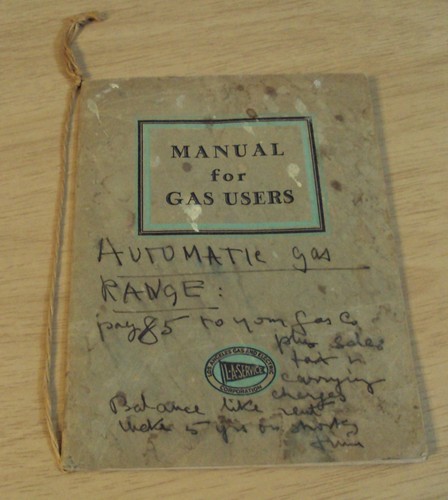 MANUAL
for
GAS USERS
AUTOMATIC gas
RANGE:
pay 85 to your Gas Co
plus sales
tax n
carrying
charges
LOS ANGELES GAS AND ELECTRIC
L.A. SERVICE
CORPORATION
Balance like rent
make 5 yrs or shorter
time